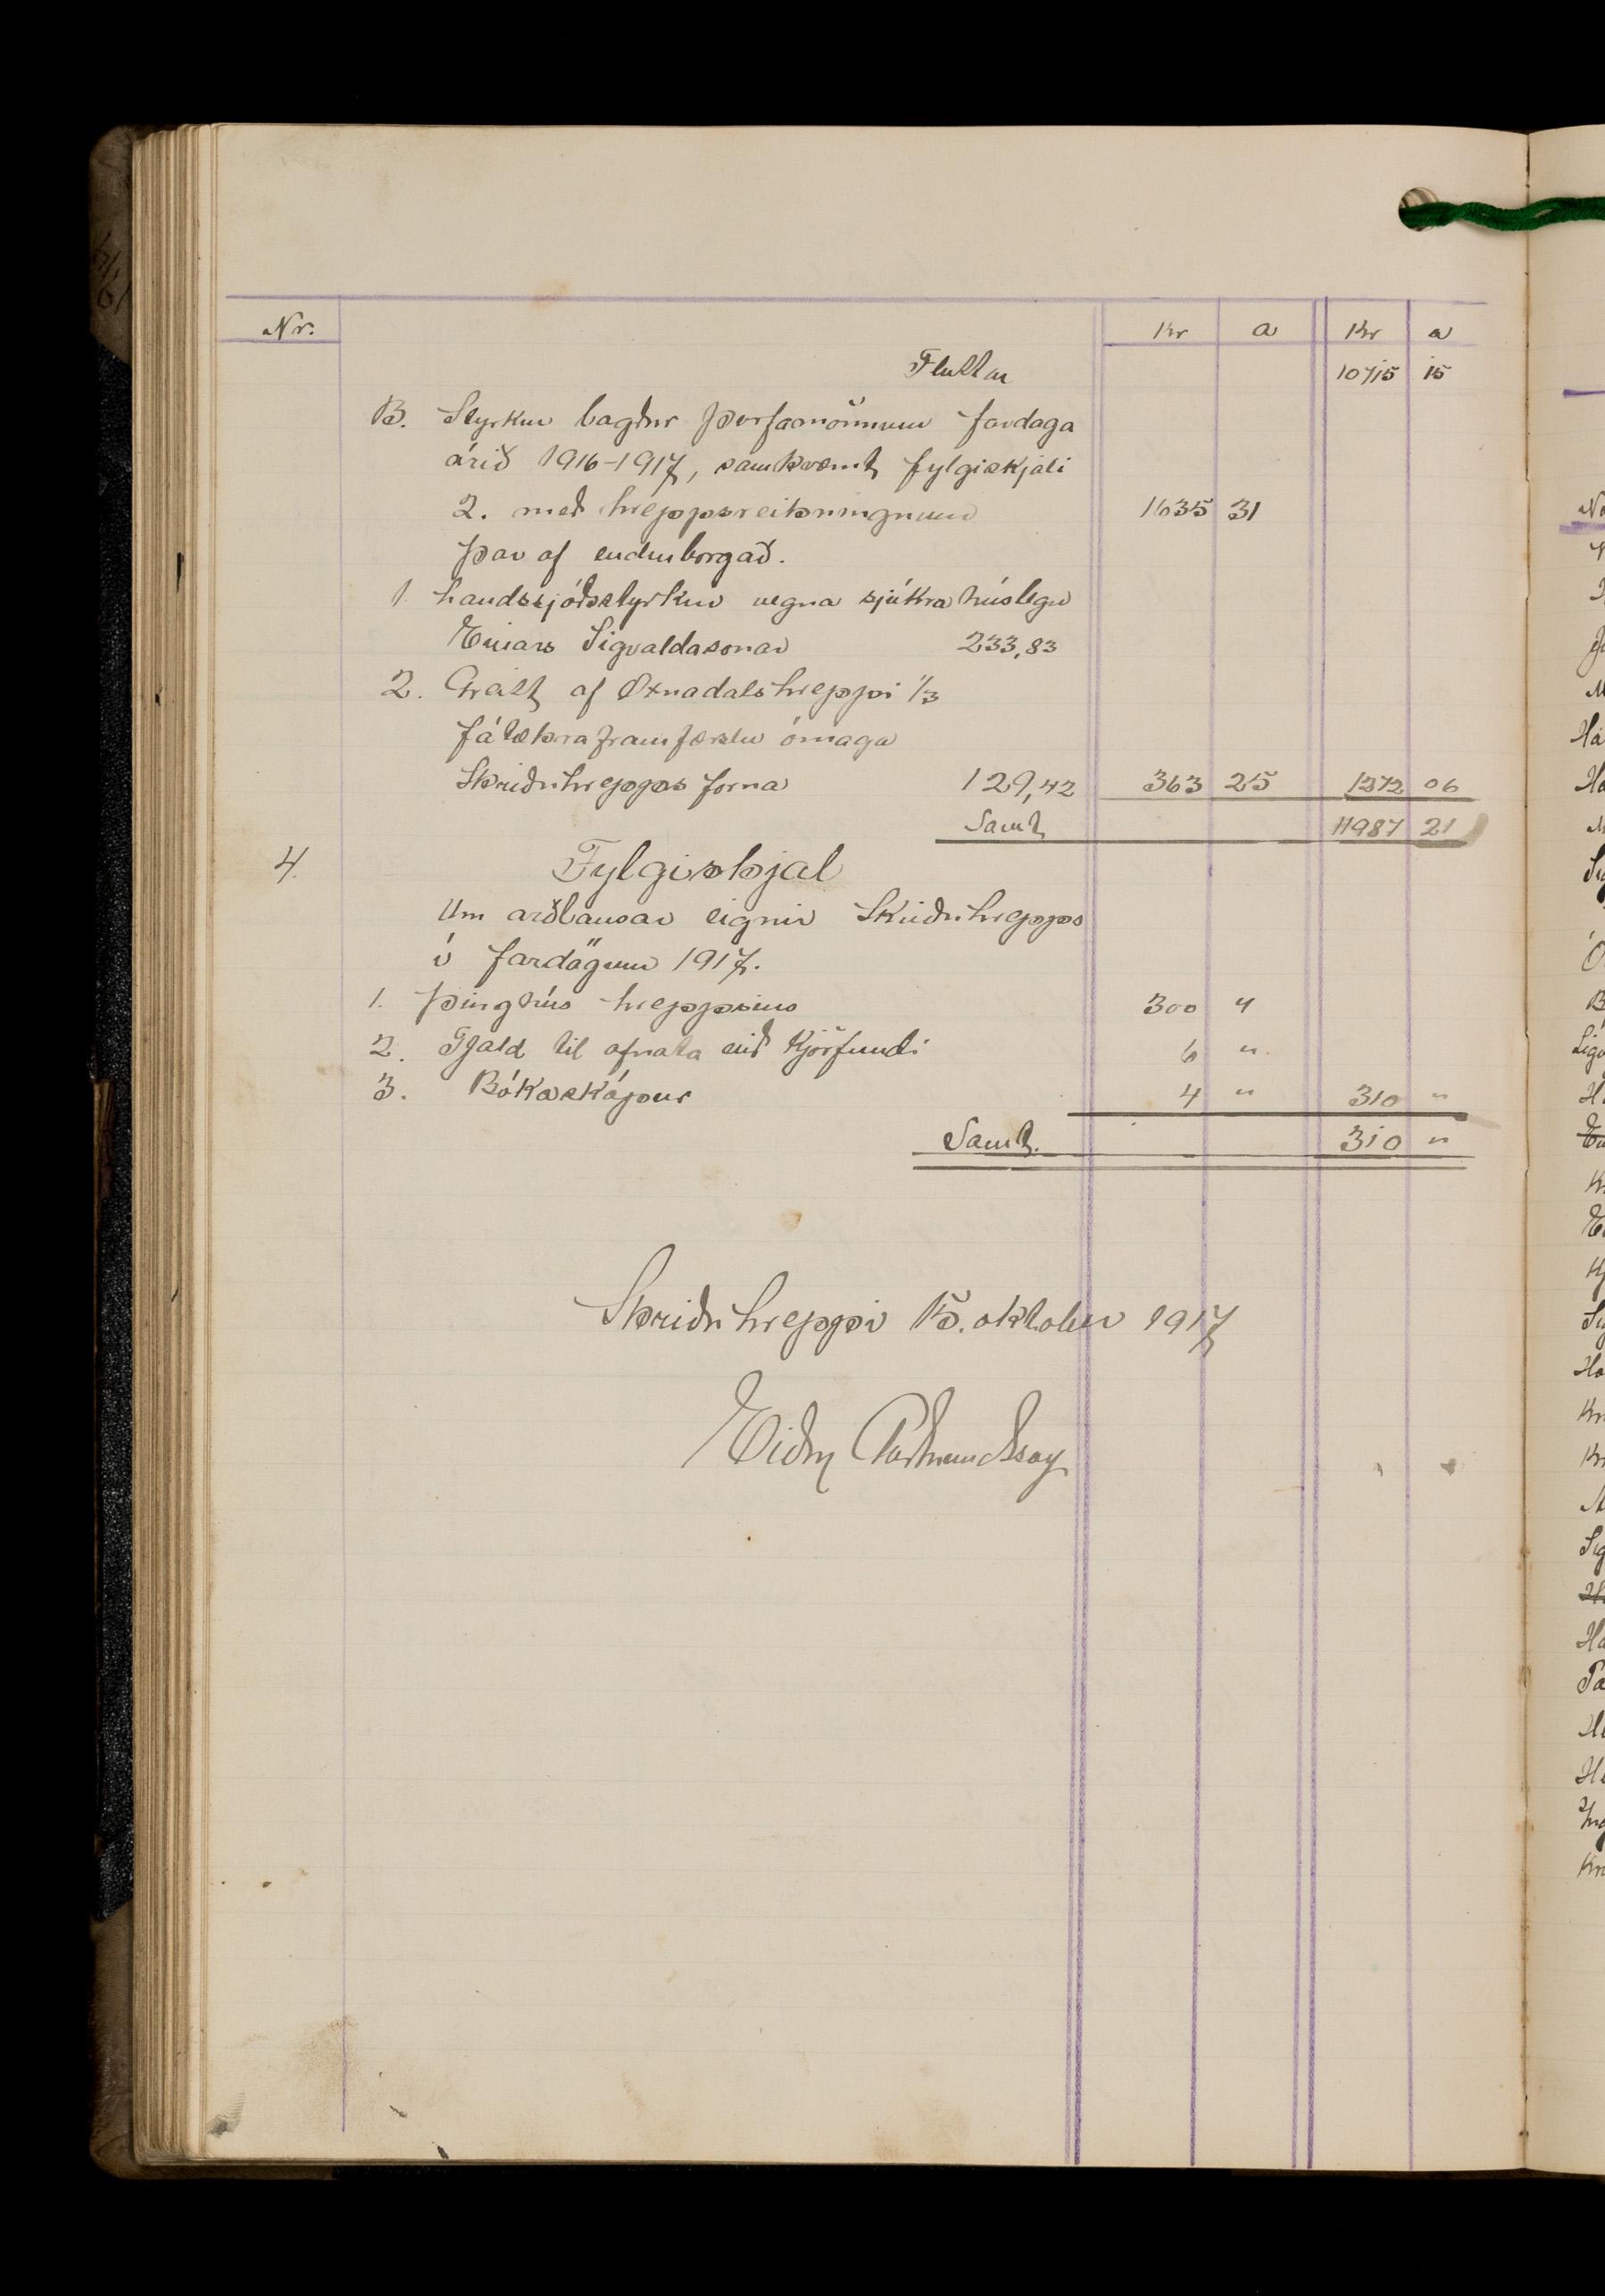 Nr. Kr a Kr a
Fluttar 10715 15
B. Styrkur lagður þurfamönnum fardaga
árið 1916-1917, samkvæmt fylgiskjali
2. með hreppsreikningnum 1635 31
þar af endurborgað.
1. Landssjóðsstyrkur vegna sjúkrahúslegu
Einars Sigvaldasonar 233,83
2. Greitt af Öxnadalshreppi 1/3
fátækraframfærslu ómaga
Skriðuhrepps forna 129,42 363 25 1272 06
Samt 11987 21
4. Fylgiskjal
Um arðlausar eignir Skriðuhrepps
í fardögum 1917.
1. Þinghús hreppsins 300 "
2. Tjald til afnota við kjörfundi 6 "
3. Bókaskápur 4 " 310 "
Samt. 310 "
Skriðuhreppi 15. oktober 1917
Eiður Guðmundsson